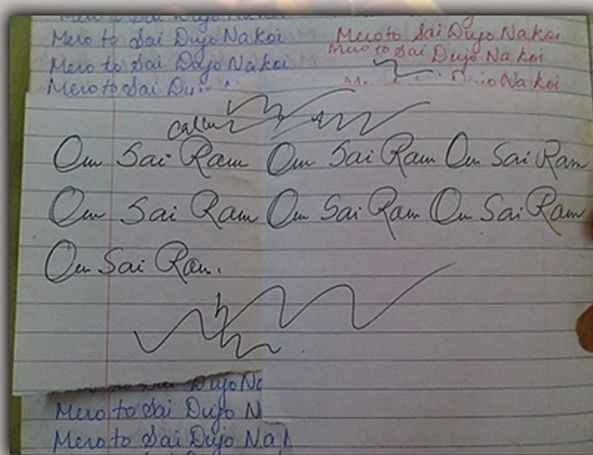 Mero to Sai Dujo Na koi Mero to Sai Dujo Na koi
Mero to Sai Dujo Na koi Mero to Sai Dujo Na koi
Mero to Sai Na koi
Om Sai Ram Om Sai Ram Om Sai Ram
Om Sai Ram Om Sai Ram Om Sai Ram
Om Sai Ram.
Dujo
Mero to Sai Dujo N
Mero to Sai Dujo Na